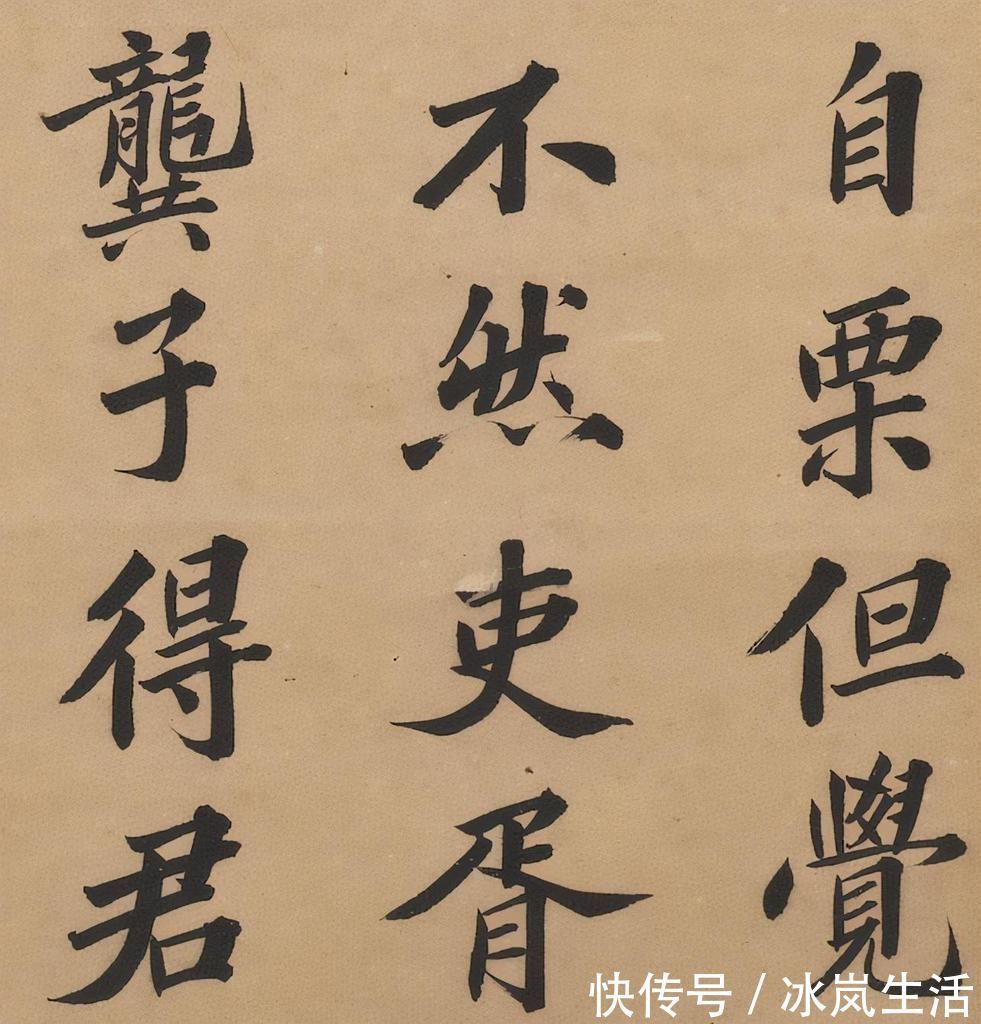 自栗但覺
不然吏胥
龔子得君
快传号 / 冰岚生活